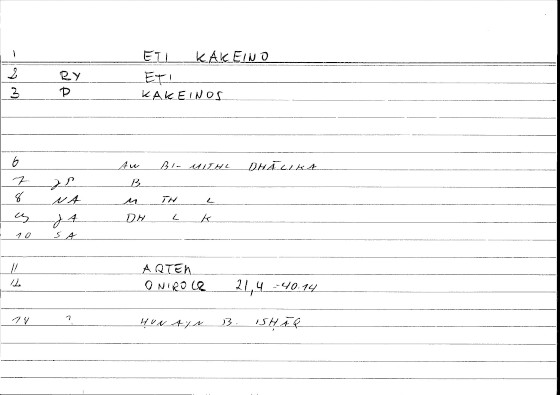 1 ETI KAKEINO
2 RY ETI
3 D KAKEINOS
6 AW BI-MITHL DHĀLIKA
7 JP B
8 NA M TH L
9 JA DH L K
10 SA
11 ARTEM
12 ONIROCR 21,4 -40.14
14 ? ḤUNAYN B. ISḤĀQ